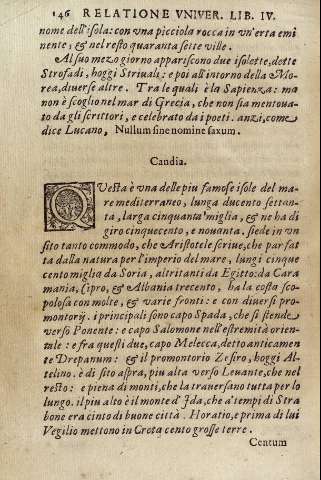 146 RELATIONE VNIVER. LIB. IV.
nome dell'isola: con vna picciola rocca in vn'erta emi
nente, & nel resto quaranta sette ville.
Al suo mezo giorno appariscono due isolette, dette
Strofadi, hoggi Striuali: e poi all'intorno della Mo-
rea, diuerse altre. Tra le quali è la Sapienza: ma
non è scoglio nel mar di Grecia, che non sia mentoua-
to da gli scrittori, e celebrato da i poeti. anzi, come
dice Lucano, Nullum sine nomine saxum.
Candia.
QVesta è vna delle piu famose isole del ma-
re mediterraneo, lunga ducento settan-
ta, larga cinquanta miglia, & ne ha di
giro cinquecento, e nouanta. siede in vn
sito tanto commodo, che Aristotele scriue, che par fat
ta dalla natura per l'imperio del mare, lungi cinque
cento miglia da Soria, altritanti da Egitto: da Cara
mania, Cipro, & Albania trecento, ha la costa sco-
polosa con molte, & varie fronti: e con diuersi pro-
montorij. i principali sono capo Spada, che si stende
verso Ponente: e capo Salomone nell'estremità orien-
tale: e fra questi due, capo Melecca, detto anticamen-
te Drepanum: & il promontorio Zefiro, hoggi Al-
telino. è di sito aspra, piu alta verso Leuante, che nel
resto: e piena di monti, che la trauersano tutta per lo
lungo. il piu alto è il monte d'Ida, che à tempi di Stra
bone era cinto di buone città. Horatio, e prima di lui
Vegilio mettono in Creta cento grosse terre.
Centum